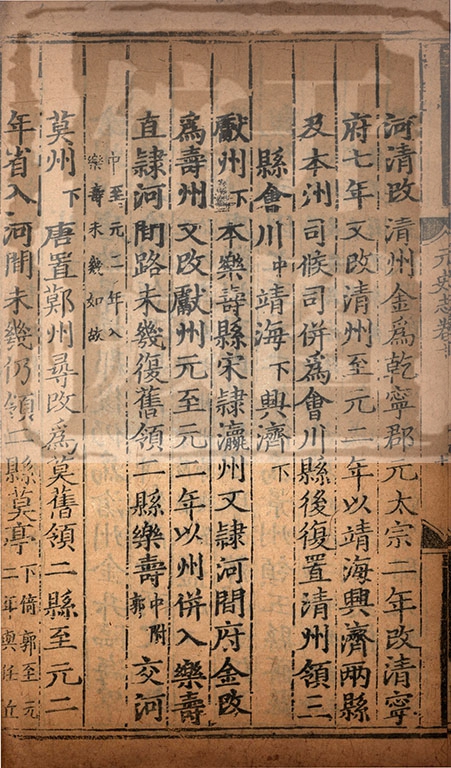 元史志卷
河清改清州金爲乾寧郡元太宗二年改清寧
府七年又改清州至元二年以靖海興濟兩縣
及本州司候司併爲會川縣後復置清州領三
縣會川中靖海下興濟下
獻州下本樂壽縣宋隷瀛州又隷河間府金改
爲壽州又改獻州元至元二年以州併入樂壽
直隷河間路未幾復舊領二縣樂壽中附郭交河
中至元二年入樂壽未幾如故
莫州下唐置鄚州尋改爲莫舊領二縣至元二
年省入河間未幾仍領二縣莫亭下倚郭至元二年與任丘